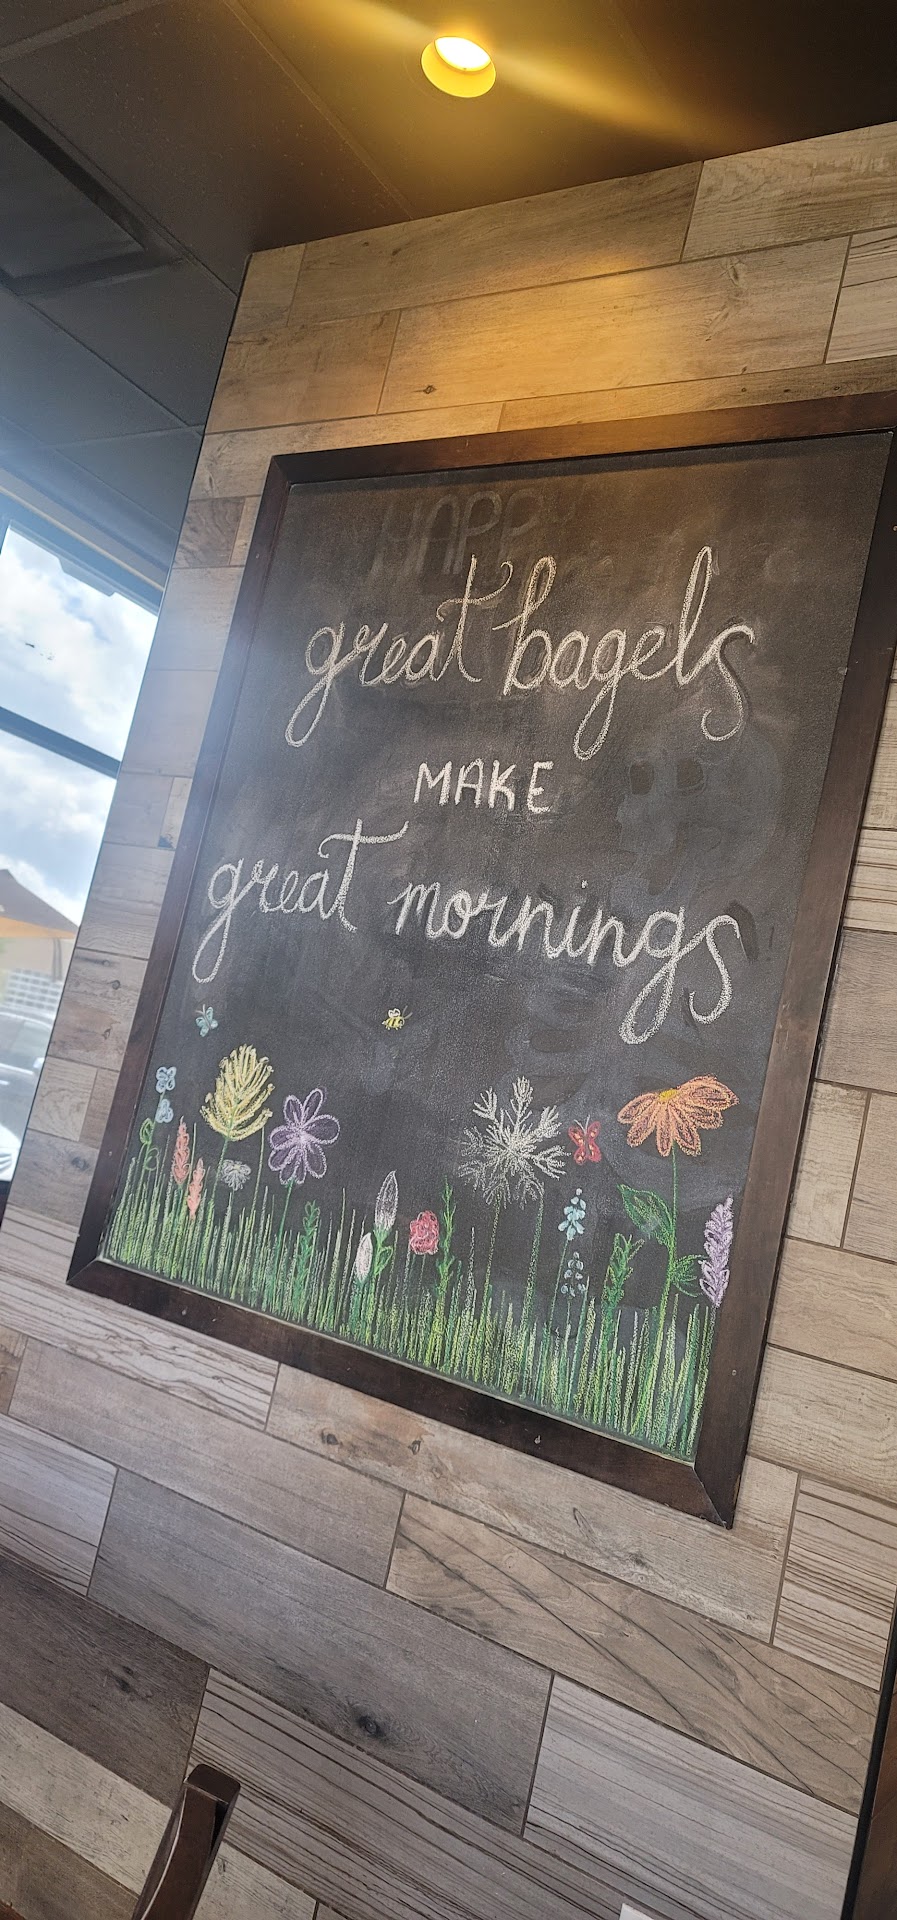 HAPPY
great bagels
MAKE
great mornings